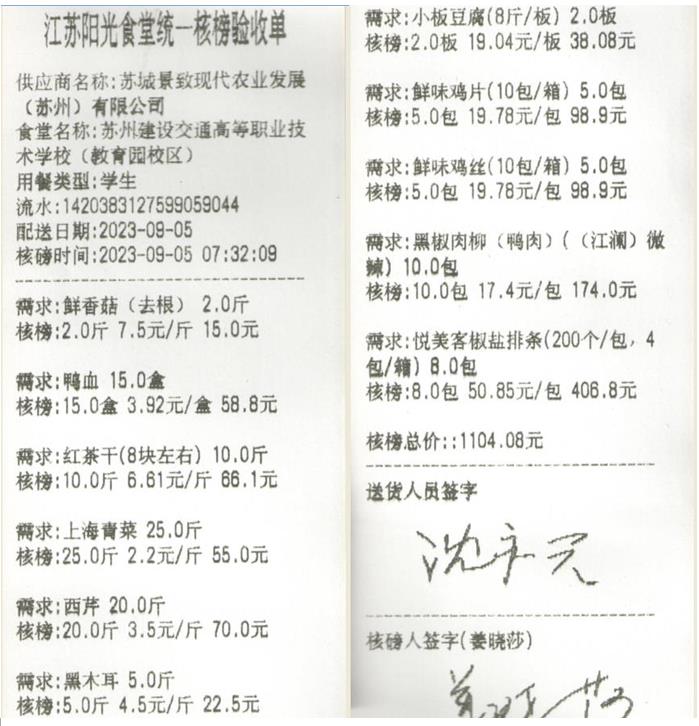 江苏阳光食堂统一核榜验收单
供应商名称:苏城景致现代农业发展
（苏州）有限公司
食堂名称:苏州建设交通高等职业技
术学校（教育园校区）
用餐类型:学生
流水:1420383127599059044
配送日期:2023-09-05
核磅时间:2023-09-05 07:32:09
需求:鲜香菇（去根） 2.0斤
核榜:2.0斤 7.5元/斤 15.0元
需求:鸭血 15.0盒
核榜:15.0盒 3.92元/盒 58.8元
需求:红茶干(8块左右) 10.0斤
核榜:10.0斤 6.61元/斤 66.1元
需求:上海青菜 25.0斤
核榜:25.0斤 2.2元/斤 55.0元
需求:西芹 20.0斤
核榜:20.0斤 3.5元/斤 70.0元
需求:黑木耳 5.0斤
核榜:5.0斤 4.5元/斤 22.5元
需求:小板豆腐(8斤/板) 2.0板
核榜:2.0板 19.04元/板 38.08元
需求:鲜味鸡片(10包/箱) 5.0包
核榜:5.0包 19.78元/包 98.9元
需求:鲜味鸡丝(10包/箱) 5.0包
核榜:5.0包 19.78元/包 98.9元
需求:黑椒肉柳（鸭肉）(（江澜）微
辣) 10.0包
核榜:10.0包 17.4元/包 174.0元
需求:悦美客椒盐排条(200个/包，4
包/箱) 8.0包
核榜:8.0包 50.85元/包 406.8元
核榜总价::1104.08元
送货人员签字
沈永元
核磅人签字(姜晓莎)
姜晓莎